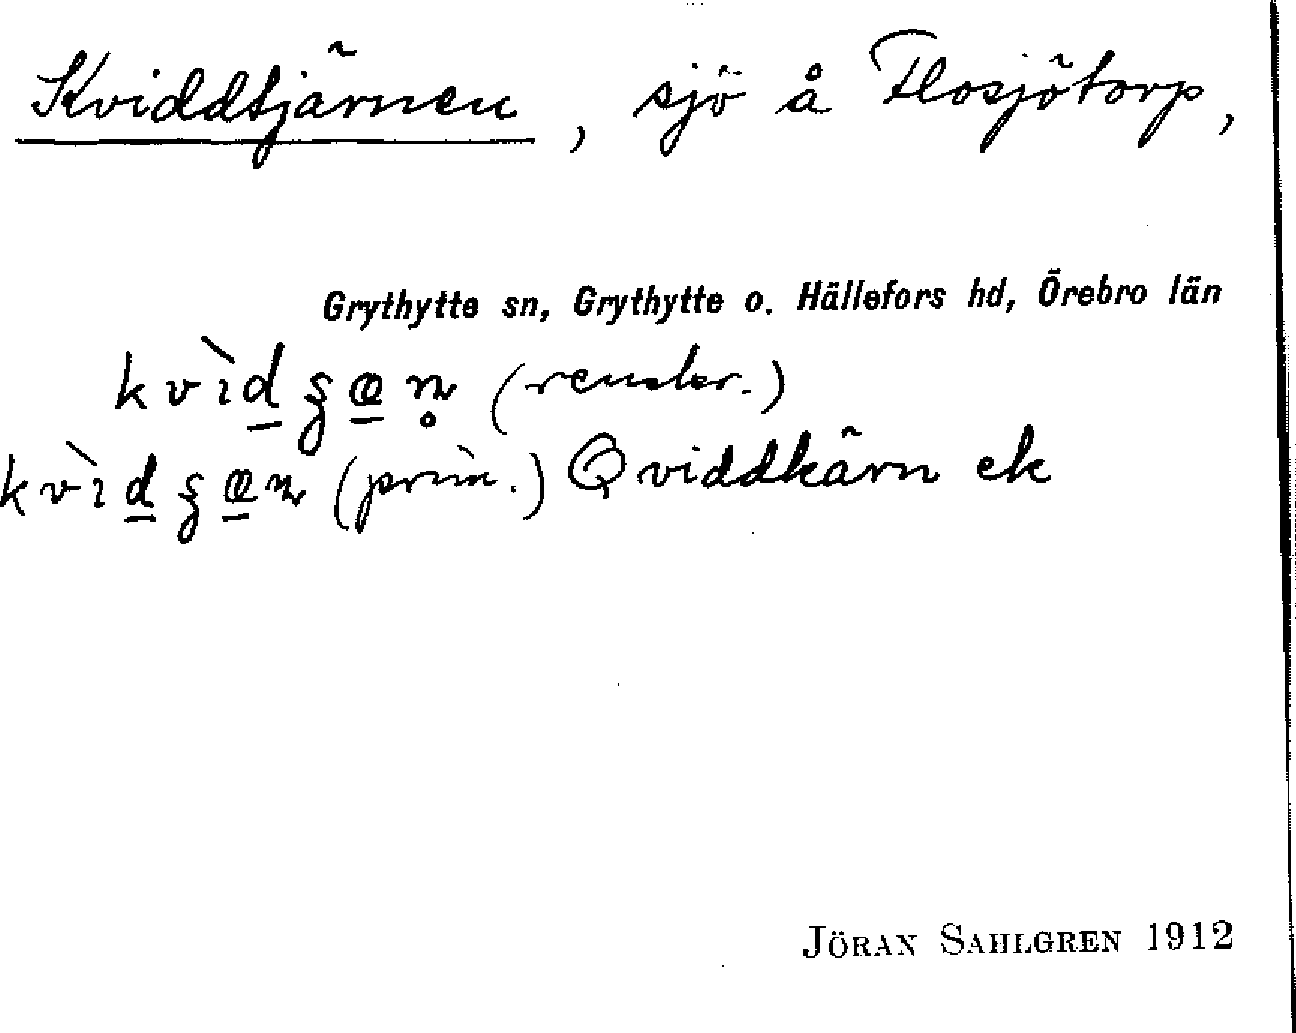 Kviddtjärnen, sjö å Flosjötorp,
Grythytte sn, Grythytte o. Hällefors hd, Örebro län
(renslar.)
(prim.) Qviddkärn ek
JÖRAN SAHLGREN 1912